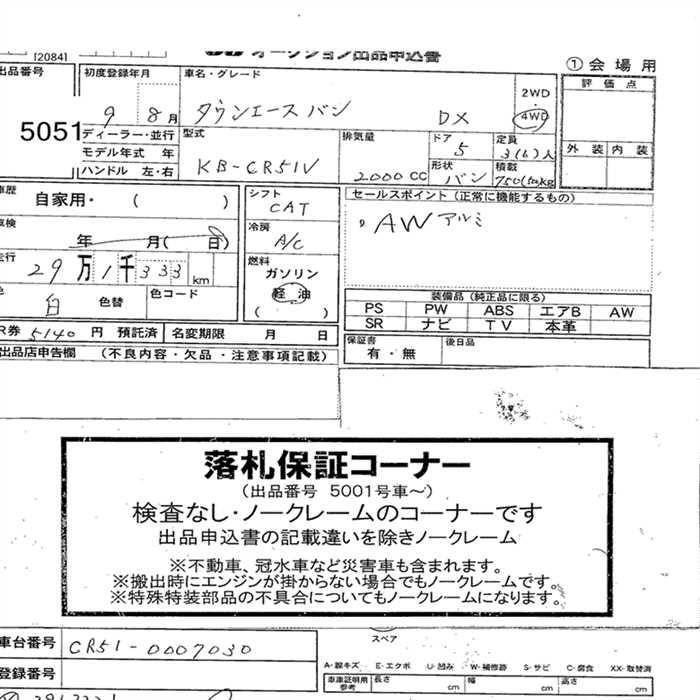 [2084]
オークション出品申込書
①会場用
出品番号
5051
初度登録年月
9 8月
車名・グレード
タウンエースバン DX
2WD
・
4WD
評価点
外装 内装
ディーラー・並行
モデル年式 年
ハンドル 左・右
型式
KB-CR51V
排気量
2000 CC
ドア
5
定員
3(6)人
形状
バン
積載
750(500)kg
車歴
自家用・( )
シフト
CAT
セールスポイント(正常に機能するもの)
AW アルミ
車検
年 月( 日)
冷房
A/C
走行
29万1千333km
燃料
ガソリン
軽油
( )
色
白 色替
色コード
装備品(純正品に限る)
PS PW ABS エアB AW
SR ナビ TV 本革
R券 5140 円 預託済
名変期限 月 日
保証書
有・無
後日品
出品店申告欄 (不良内容・欠品・注意事項記載)
落札保証コーナー
(出品番号 5001号車～)
検査なし・ノークレームのコーナーです
出品申込書の記載違いを除きノークレーム
※不動車、冠水車など災害車も含まれます。
※搬出時にエンジンが掛からない場合でもノークレームです。
※特殊特装部品の不具合についてもノークレームになります。
車台番号
CR51-0007030
スペア
登録番号
A-線キズ E-エクボ U-凹み W-補修跡 S-サビ C-腐食 XX-取替済
車庫証明用
参考
長さ cm
幅 cm
高さ cm